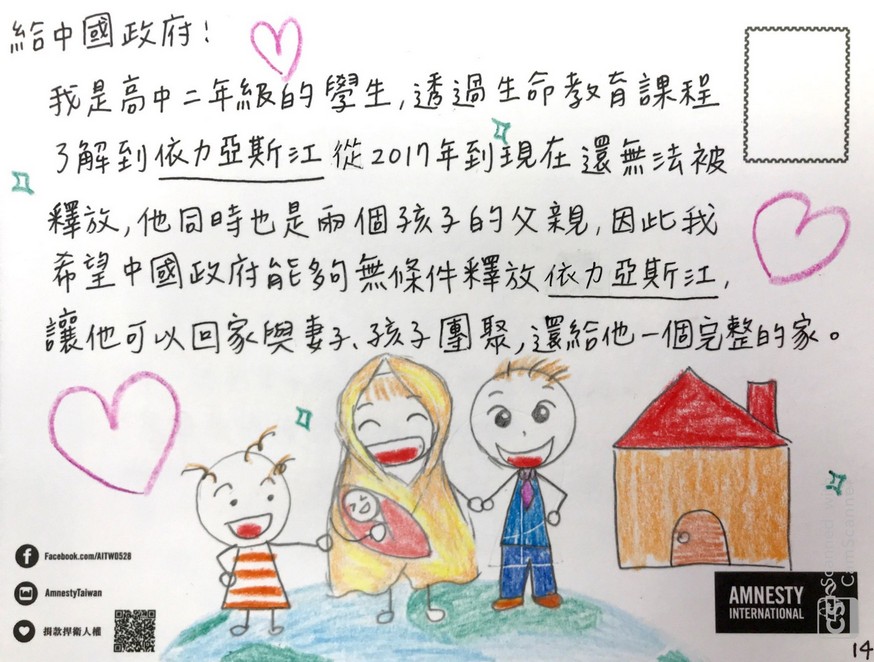 給中國政府！
我是高中二年級的學生，透過生命教育課程
了解到依力亞斯江從2017年到現在還無法被
釋放，他同時也是兩個孩子的父親，因此我
希望中國政府能夠無條件釋放依力亞斯江，
讓他可以回家與妻子、孩子團聚，還給他一個完整的家。
Facebook.com/AITW0528
AmnestyTaiwan
捐款捍衛人權
AMNESTY
INTERNATIONAL
CS Scanned with
CamScanner
14